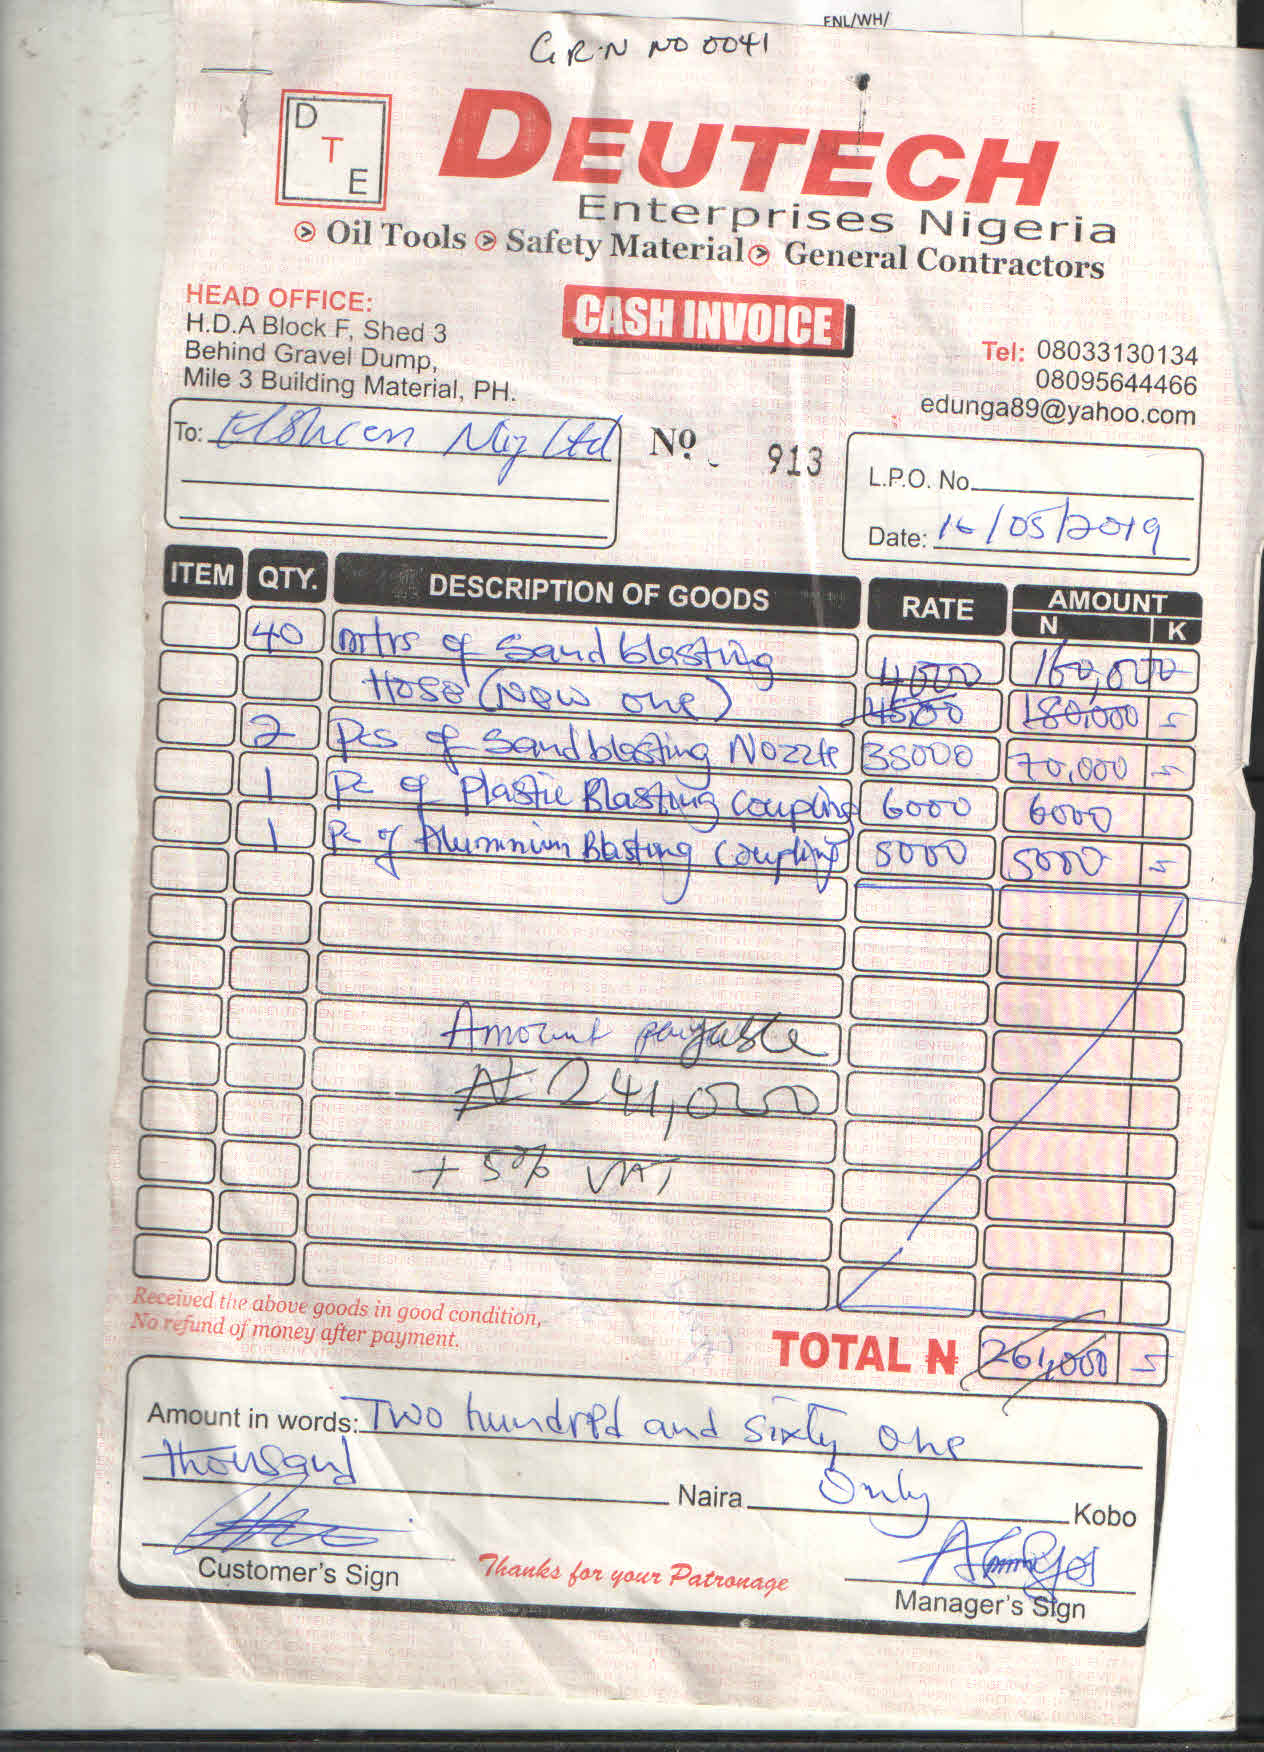 FNL/WH/
G.R.N NO 0041
D
T
E
DEUTECH
Enterprises Nigeria
Oil Tools Safety Material General Contractors
HEAD OFFICE:
H.D.A Block F, Shed 3
Behind Gravel Dump,
Mile 3 Building Material, PH.
CASH INVOICE
Tel: 08033130134
08095644466
edunga89@yahoo.com
To: Nig Ltd
Nº 913
L.P.O. No
Date: 16/05/2019
ITEM QTY. DESCRIPTION OF GOODS RATE AMOUNT
N K
40 mtrs of Sandblasting 4,000 160,000
Hose (New one) 4500 180,000
2 Pcs of Sandblasting Nozzle 35000 70,000
1 Pc of Plastic Blasting Coupling 6000 6000
1 Pc of Aluminium Blasting Coupling 5000 5000
Amount payable
₦ 241,000
+ 5% VAT
Received the above goods in good condition,
No refund of money after payment.
TOTAL ₦ 261,000
Amount in words: Two hundred and sixty one
thousand Naira Only Kobo
Customer's Sign Thanks for your Patronage Manager's Sign